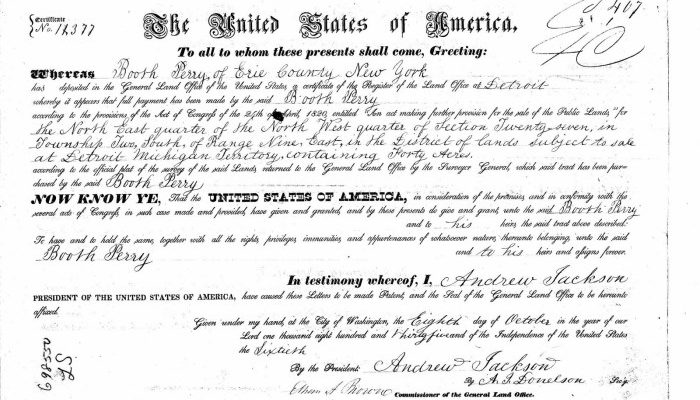 Certificate
No. 11377
The United States of America,
To all to whom these presents shall come, Greeting:
Whereas Booth Perry, of Erie County New York
has deposited in the General Land Office of the United States, a certificate of the Register of the Land Office at Detroit
whereby it appears that full payment has been made by the said Booth Perry
according to the provisions of the Act of Congress of the 24th of April, 1820, entitled "An act making further provision for the sale of the Public Lands," for
the North East quarter of the North West quarter of Section Twenty-seven, in
Township Two, South, of Range Nine, East, in the District of lands subject to sale
at Detroit Michigan Territory, containing Forty Acres.
according to the official plat of the survey of the said Lands, returned to the General Land Office by the Surveyor General, which said tract has been pur-
chased by the said Booth Perry
NOW KNOW YE, That the UNITED STATES OF AMERICA, in consideration of the premises, and in conformity with the
several acts of Congress, in such case made and provided, have given and granted, and by these presents do give and grant, unto the said Booth Perry
and to his heirs, the said tract above described:
To have and to hold the same, together with all the rights, privileges, immunities, and appurtenances of whatsoever nature, thereunto belonging, unto the said
Booth Perry and to his heirs and assigns forever.
In testimony whereof, I, Andrew Jackson
PRESIDENT OF THE UNITED STATES OF AMERICA, have caused these Letters to be made Patent, and the Seal of the General Land Office to be hereunto
affixed.
Given under my hand, at the City of Washington, the Eighth day of October in the year of our
Lord one thousand eight hundred and thirty five and of the Independence of the United States
the Sixtieth
By the President: Andrew Jackson
By A. J. Donelson Sec'y.
Ethan A Brown Commissioner of the General Land Office.